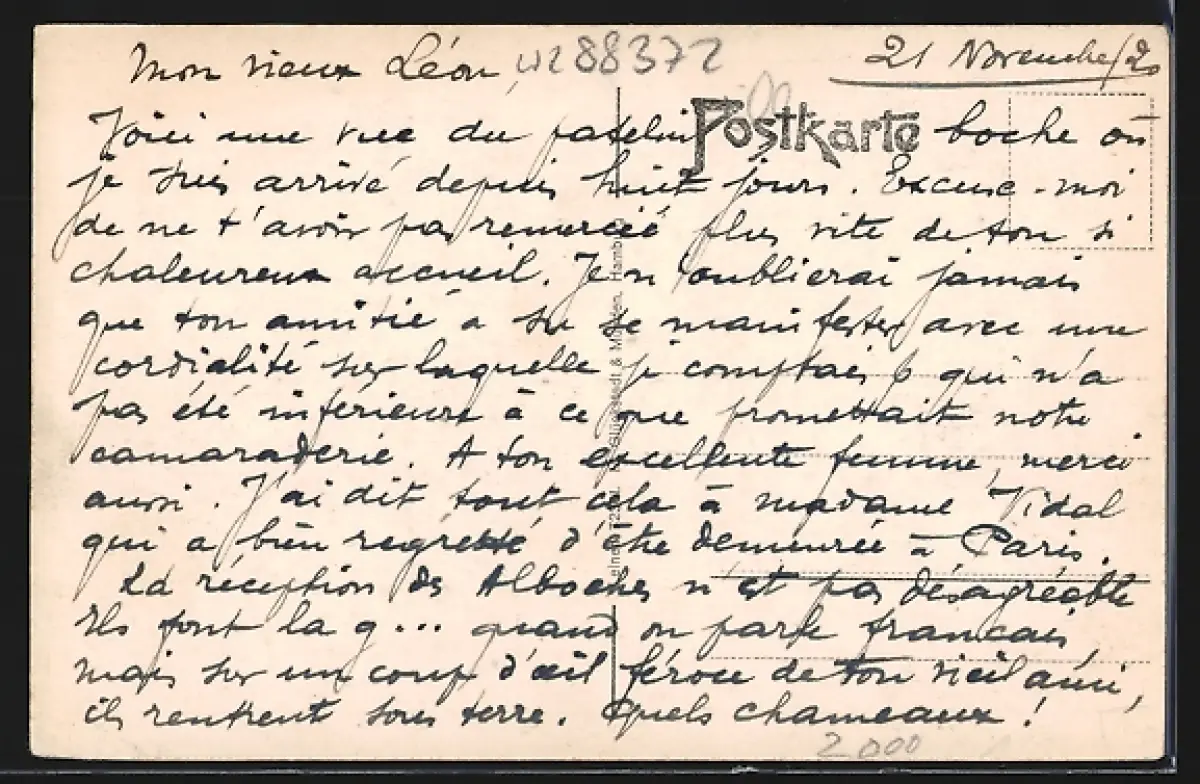 Mon vieux Léon, 4288372 21 Novembre/20
Voici une vue du patelin Postkarte boche où
je suis arrivé depuis huit jours. Excuse-moi
de ne t'avoir pas remercié plus vite de ton si
chaleureux accueil. Je n'oublierai jamais
que ton amitié a su se manifester avec une
cordialité sur laquelle je comptais & qui n'a
pas été inférieure à ce que promettait notre
camaraderie. A ton excellente femme, merci
aussi. J'ai dit tout cela à madame Vidal
qui a bien regretté d'être demeurée à Paris.
La réception des Alboches n'est pas désagréable
Ils font la g... quand on parle francais,
mais sur un coup d'œil féroce de ton vieil ami,
ils rentrent sous terre. Quels chameaux !
2000